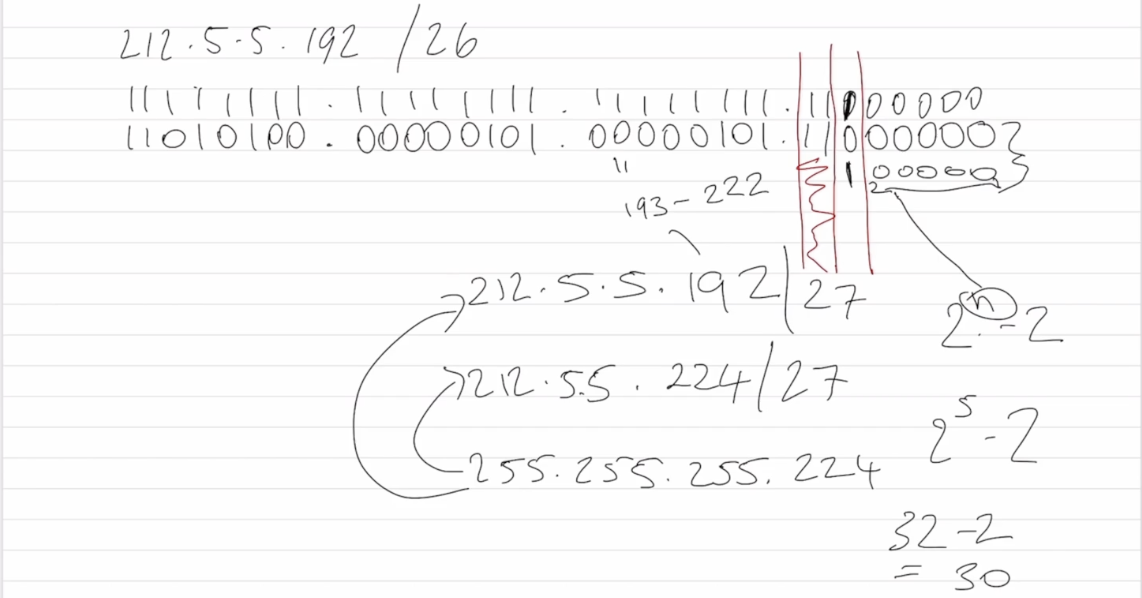 212.5.5.192 /26
11111111.11111111.11111111.11000000
11010100.00000101.00000101.11000000
100000
"
193-222
212.5.5.192/27
2ⁿ-2
212.5.5.224/27
2⁵-2
255.255.255.224
32-2
= 30